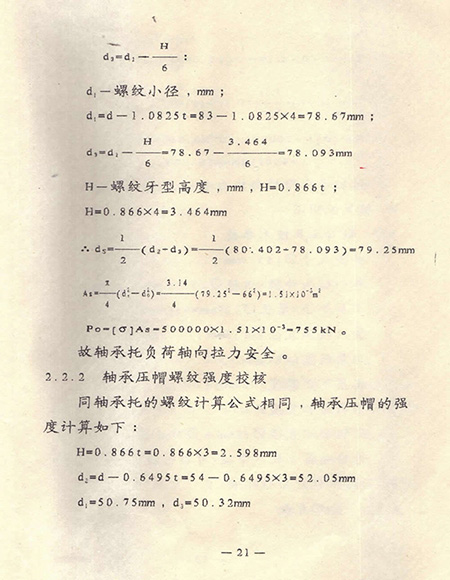 d₃=d₁－H/6；
d₁－螺纹小径，mm；
d₁=d－1.0825t=83－1.0825×4=78.67mm；
d₃=d₁－H/6=78.67－3.464/6=78.093mm
H－螺纹牙型高度，mm，H=0.866t；
H=0.866×4=3.464mm
∴ds=1/2(d₂-d₃)=1/2(80.402+78.093)=79.25mm
As=π/4(d²-d²)=3.14/4(79.25²－66²)=1.51×10⁻³m²
Po=[σ]As=500000×1.51×10⁻³=755kN。
故轴承托负荷轴向拉力安全。
2.2.2 轴承压帽螺纹强度校核
同轴承托的螺纹计算公式相同，轴承压帽的强
度计算如下：
H=0.866t=0.866×3=2.598mm
d₂=d－0.6495t=54－0.6495×3=52.05mm
d₁=50.75mm，d₃=50.32mm
－21－